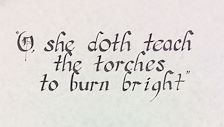 "O, she doth teach
the torches
to burn bright"